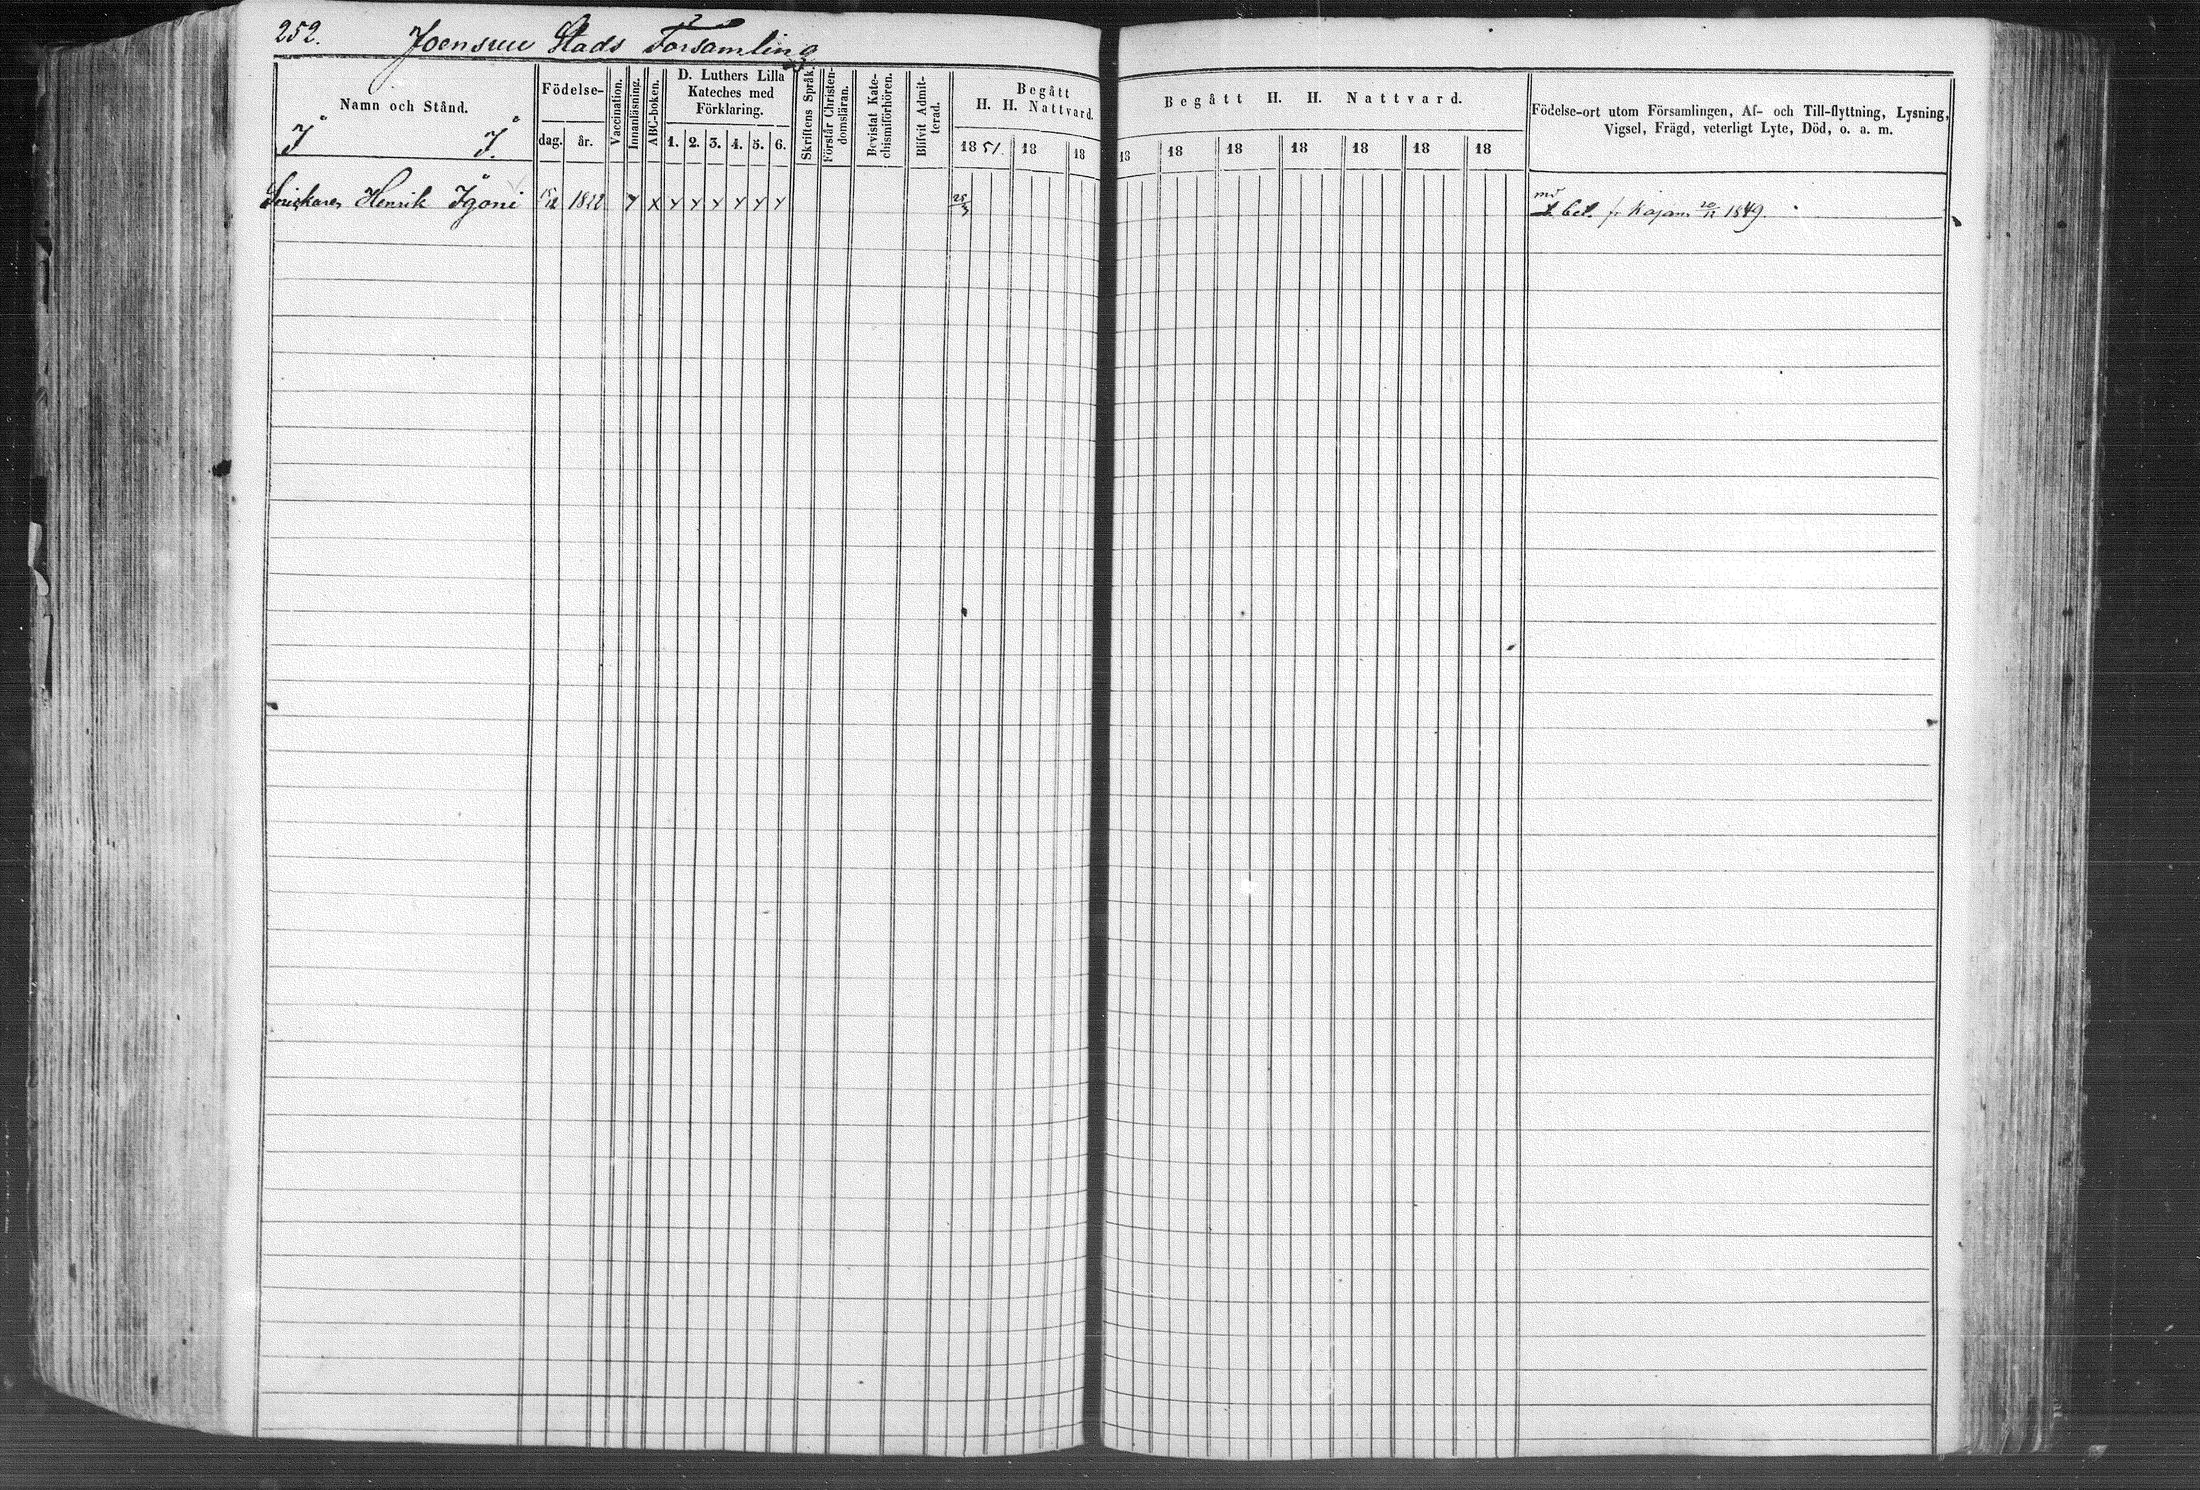 252. Joensuu Stads Församling
Namn och Stånd.
Födelse-
dag. år.
Vaccination.
Innanläsning.
ABC-boken.
D. Luthers Lilla
Kateches med
Förklaring.
1. 2. 3. 4. 5. 6.
Skriftens Språk.
Förstår Christen-
domsläran.
Bevistat Kate-
chismiförhören.
Blifvit Admit-
terad.
Begått
H. H. Nattvard.
1851. 18 18
Begått H. H. Nattvard.
18 18 18 18 18 18 18
Födelse-ort utom Församlingen, Af- och Till-flyttning, Lysning,
Vigsel, Frägd, veterligt Lyte, Död, o. a. m.
Henrik 1822 bet. fr Kajana 1849.